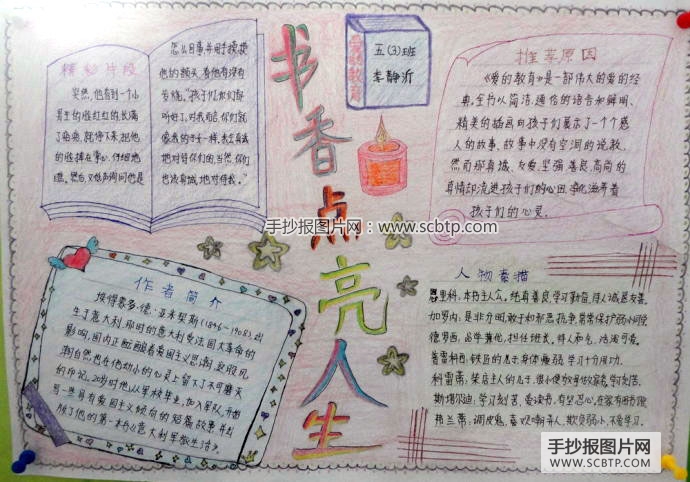 书香点亮人生
爱的教育
五(3)班
李静沂
精彩片段
突然,他看到一个小
男生的脸红红的,长满
了
他怎么回事,并用手摸摸
他的额头,看他有没有
发烧。"孩子们,你们都
听好了,对我而言,你们就
像我的子女一样,我全身心
地对待你们的,当然,你们
也该真诚地对待我。"
推荐原因
《爱的教育》是一部伟大的爱的经
典,全书以简洁、通俗的语言和鲜明、
精美的插画向孩子们展示了一个个感
人的故事,故事中没有空洞的说教,
然而那真诚、友爱、坚强、善良、高尚的
真情却流进孩子们的心田,净化滋养着
孩子们的心灵。
手抄报图片网:www.scbtp.com
作者简介
埃得蒙多·德·亚米契斯(1846-1908),出
生于意大利,那时的意大利受法国大革命的
影响,国内正酝酿着爱国主义思潮,这股风
潮自然也在他幼小的心灵上留下了不可磨灭
的印记。20岁时他从军校毕业,加入军队,开始
写一些具有爱国主义倾向的短篇故事,并出
版了他的第一本书《意大利军旅生活》。
人物素描
恩里科:本书主人公,纯真善良,学习勤奋,待人诚恳友善。
加罗内:是非分明,敢于和邪恶抗争,常常保护弱小同学
德罗西:品学兼优,担任班长,待人和气,活泼可爱。
普雷科西:铁匠的儿子,身体瘦弱,学习十分用功。
科雷蒂:柴店主人的儿子,很小便分担家务,学习刻苦。
斯塔尔迪:学习刻苦、爱读书,有坚忍心,
弗兰蒂:调皮鬼,喜欢嘲弄人,欺负弱小,不爱学习。
手抄报图片网
WWW.SCBTP.COM